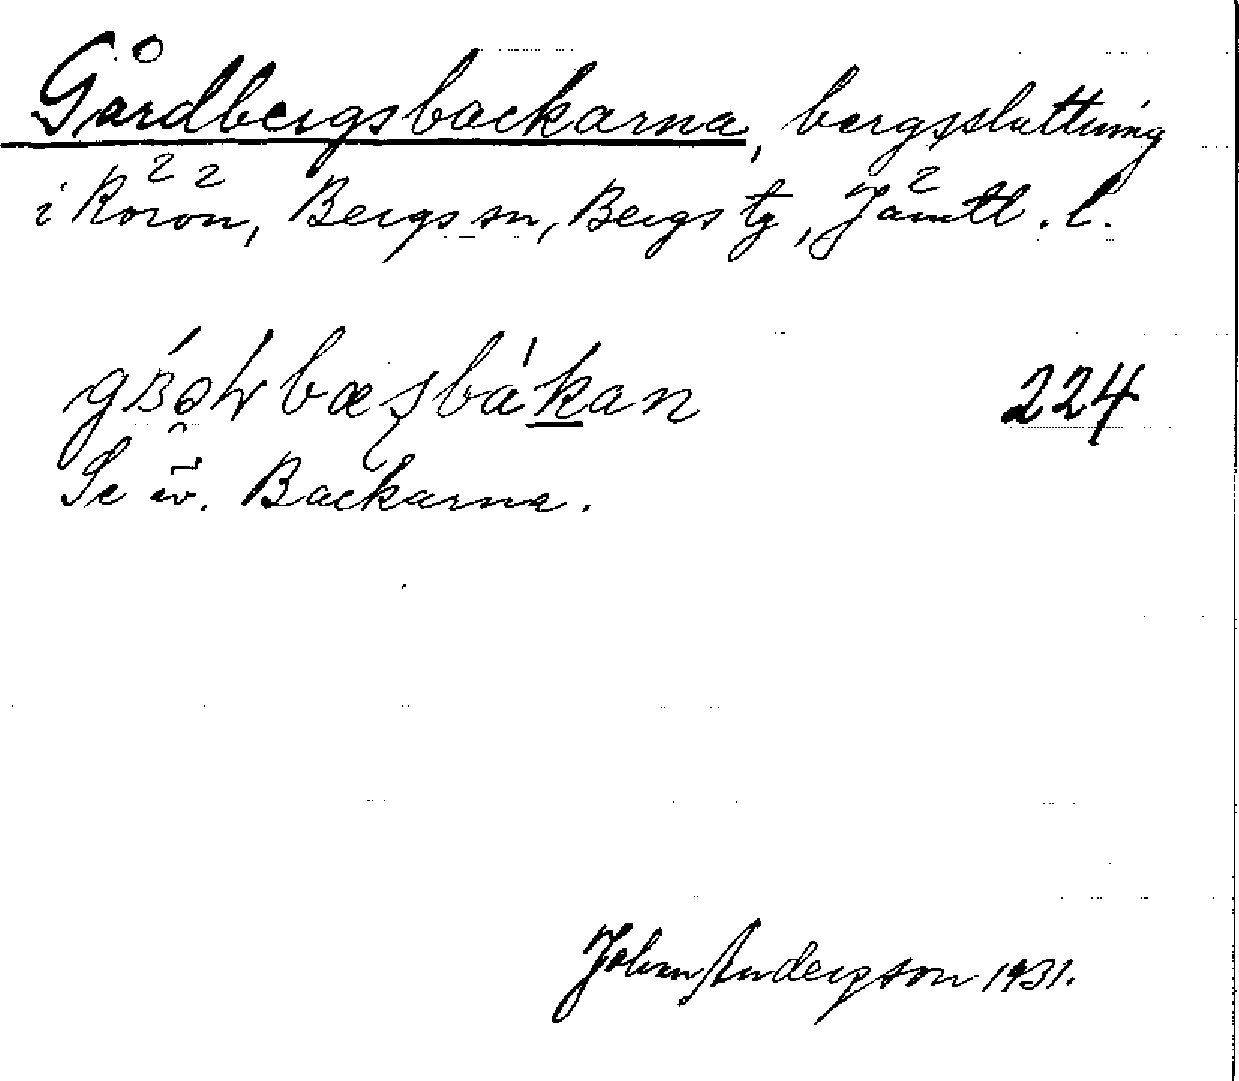 Gårdbergsbackarna, bergssluttning
i Rörön, Bergs sn, Bergs tg, Jämtl. l.
224
Se äv. Backarna.
John Andersson 1931.